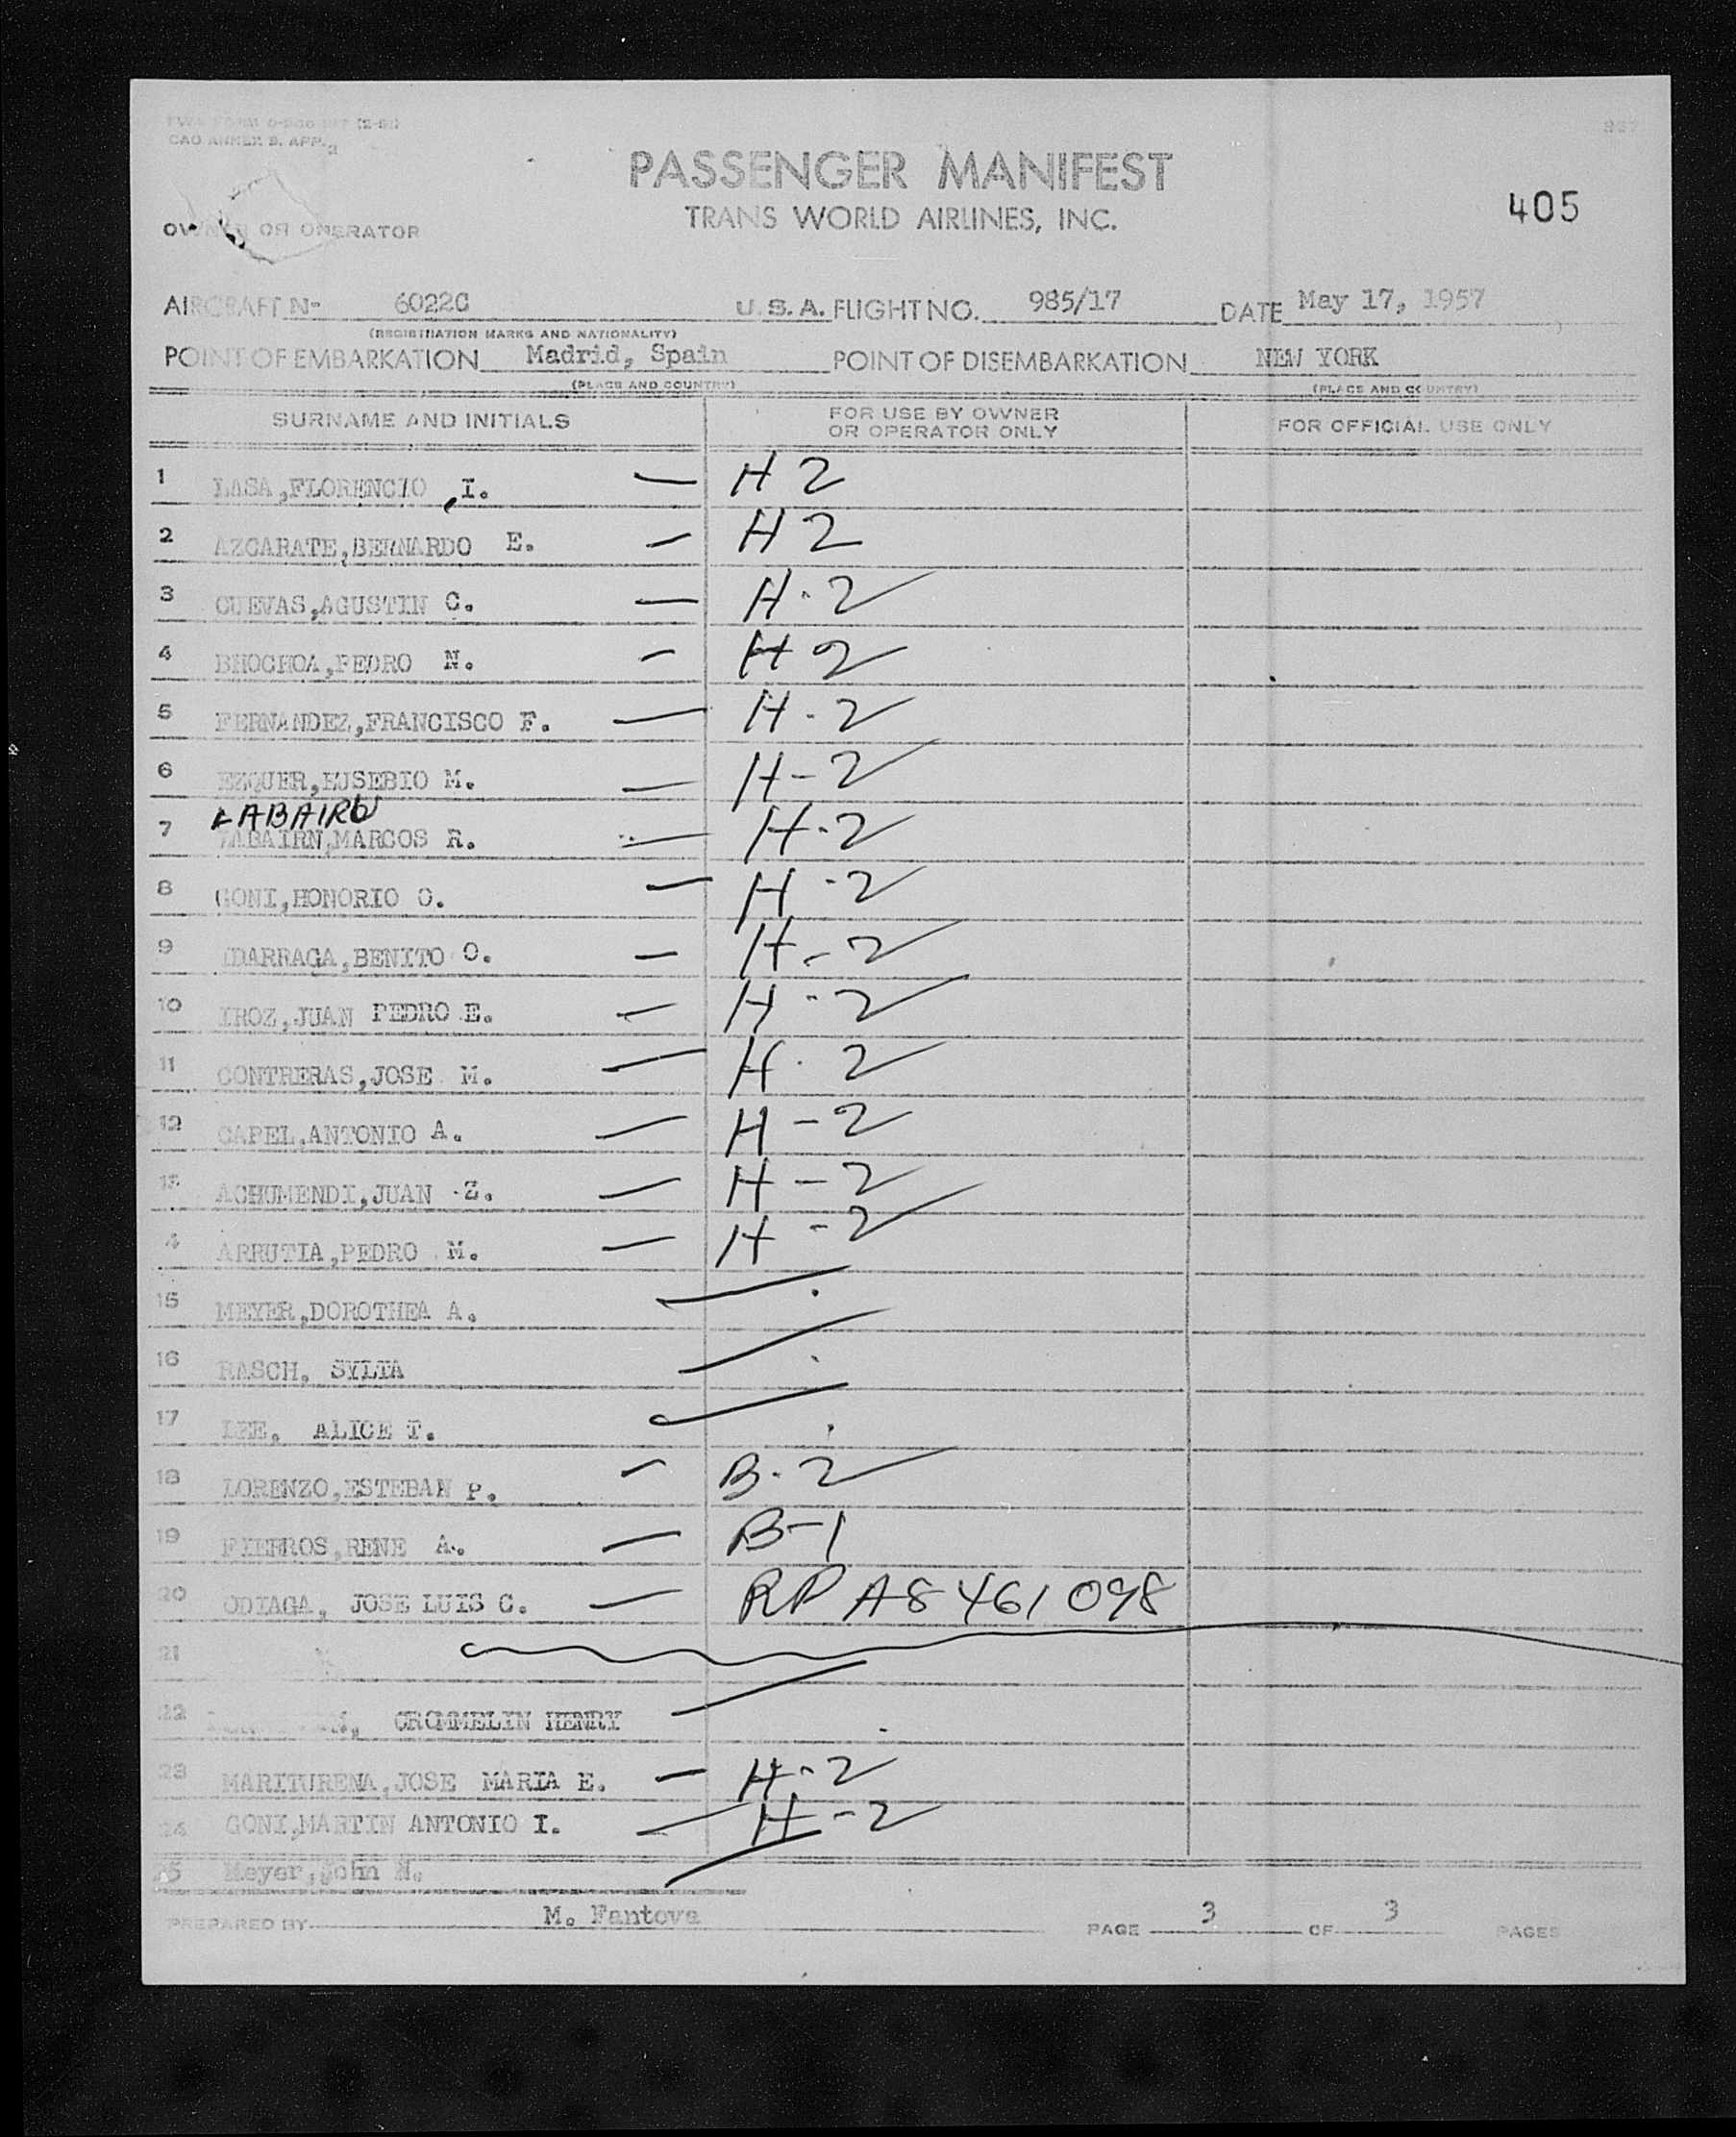 CAO ANNEX 9, APP. 2
PASSENGER MANIFEST
TRANS WORLD AIRLINES, INC.
405
OWNER OR OPERATOR
AIRCRAFT Nº 6022C U.S.A. FLIGHT NO. 985/17 DATE May 17, 1957
(REGISTRATION MARKS AND NATIONALITY)
POINT OF EMBARKATION Madrid, Spain POINT OF DISEMBARKATION NEW YORK
(PLACE AND COUNTRY) (PLACE AND COUNTRY)
SURNAME AND INITIALS FOR USE BY OWNER OR OPERATOR ONLY FOR OFFICIAL USE ONLY
1 LASA,FLORENCIO ,I. — H 2
2 AZCARATE,BERNARDO E. — H 2
3 CUEVAS,AGUSTIN C. — H-2
4 BHOCHOA,PEDRO N. — H 2
5 FERNANDEZ,FRANCISCO F. — H-2
6 EZQUER,EUSEBIO M. — H-2
LABAIRU
7 LABAIRN,MARCOS R. — H-2
8 GONI,HONORIO O. — H-2
9 IDARRAGA,BENITO O. — H-2
10 IROZ,JUAN PEDRO E. — H-2
11 CONTRERAS,JOSE M. — H-2
12 CAPEL,ANTONIO A. — H-2
13 ACHUMENDI,JUAN Z. — H-2
4 ARRUTIA,PEDRO M. — H-2
15 MEYER,DOROTHEA A.
16 RASCH, SYLTA
17 LEE, ALICE T.
18 LORENZO,ESTEBAN P. — B-2
19 RENE A. — B-1
20 ODIAGA, JOSE LUIS C. — RP A8 461 098
21
22 CROMMELIN HENRY
23 MARITURENA,JOSE MARIA E. — H-2
24 GONI,MARTIN ANTONIO I. — H-2
25 Meyer,John N.
PREPARED BY M. Fantova PAGE 3 OF 3 PAGES